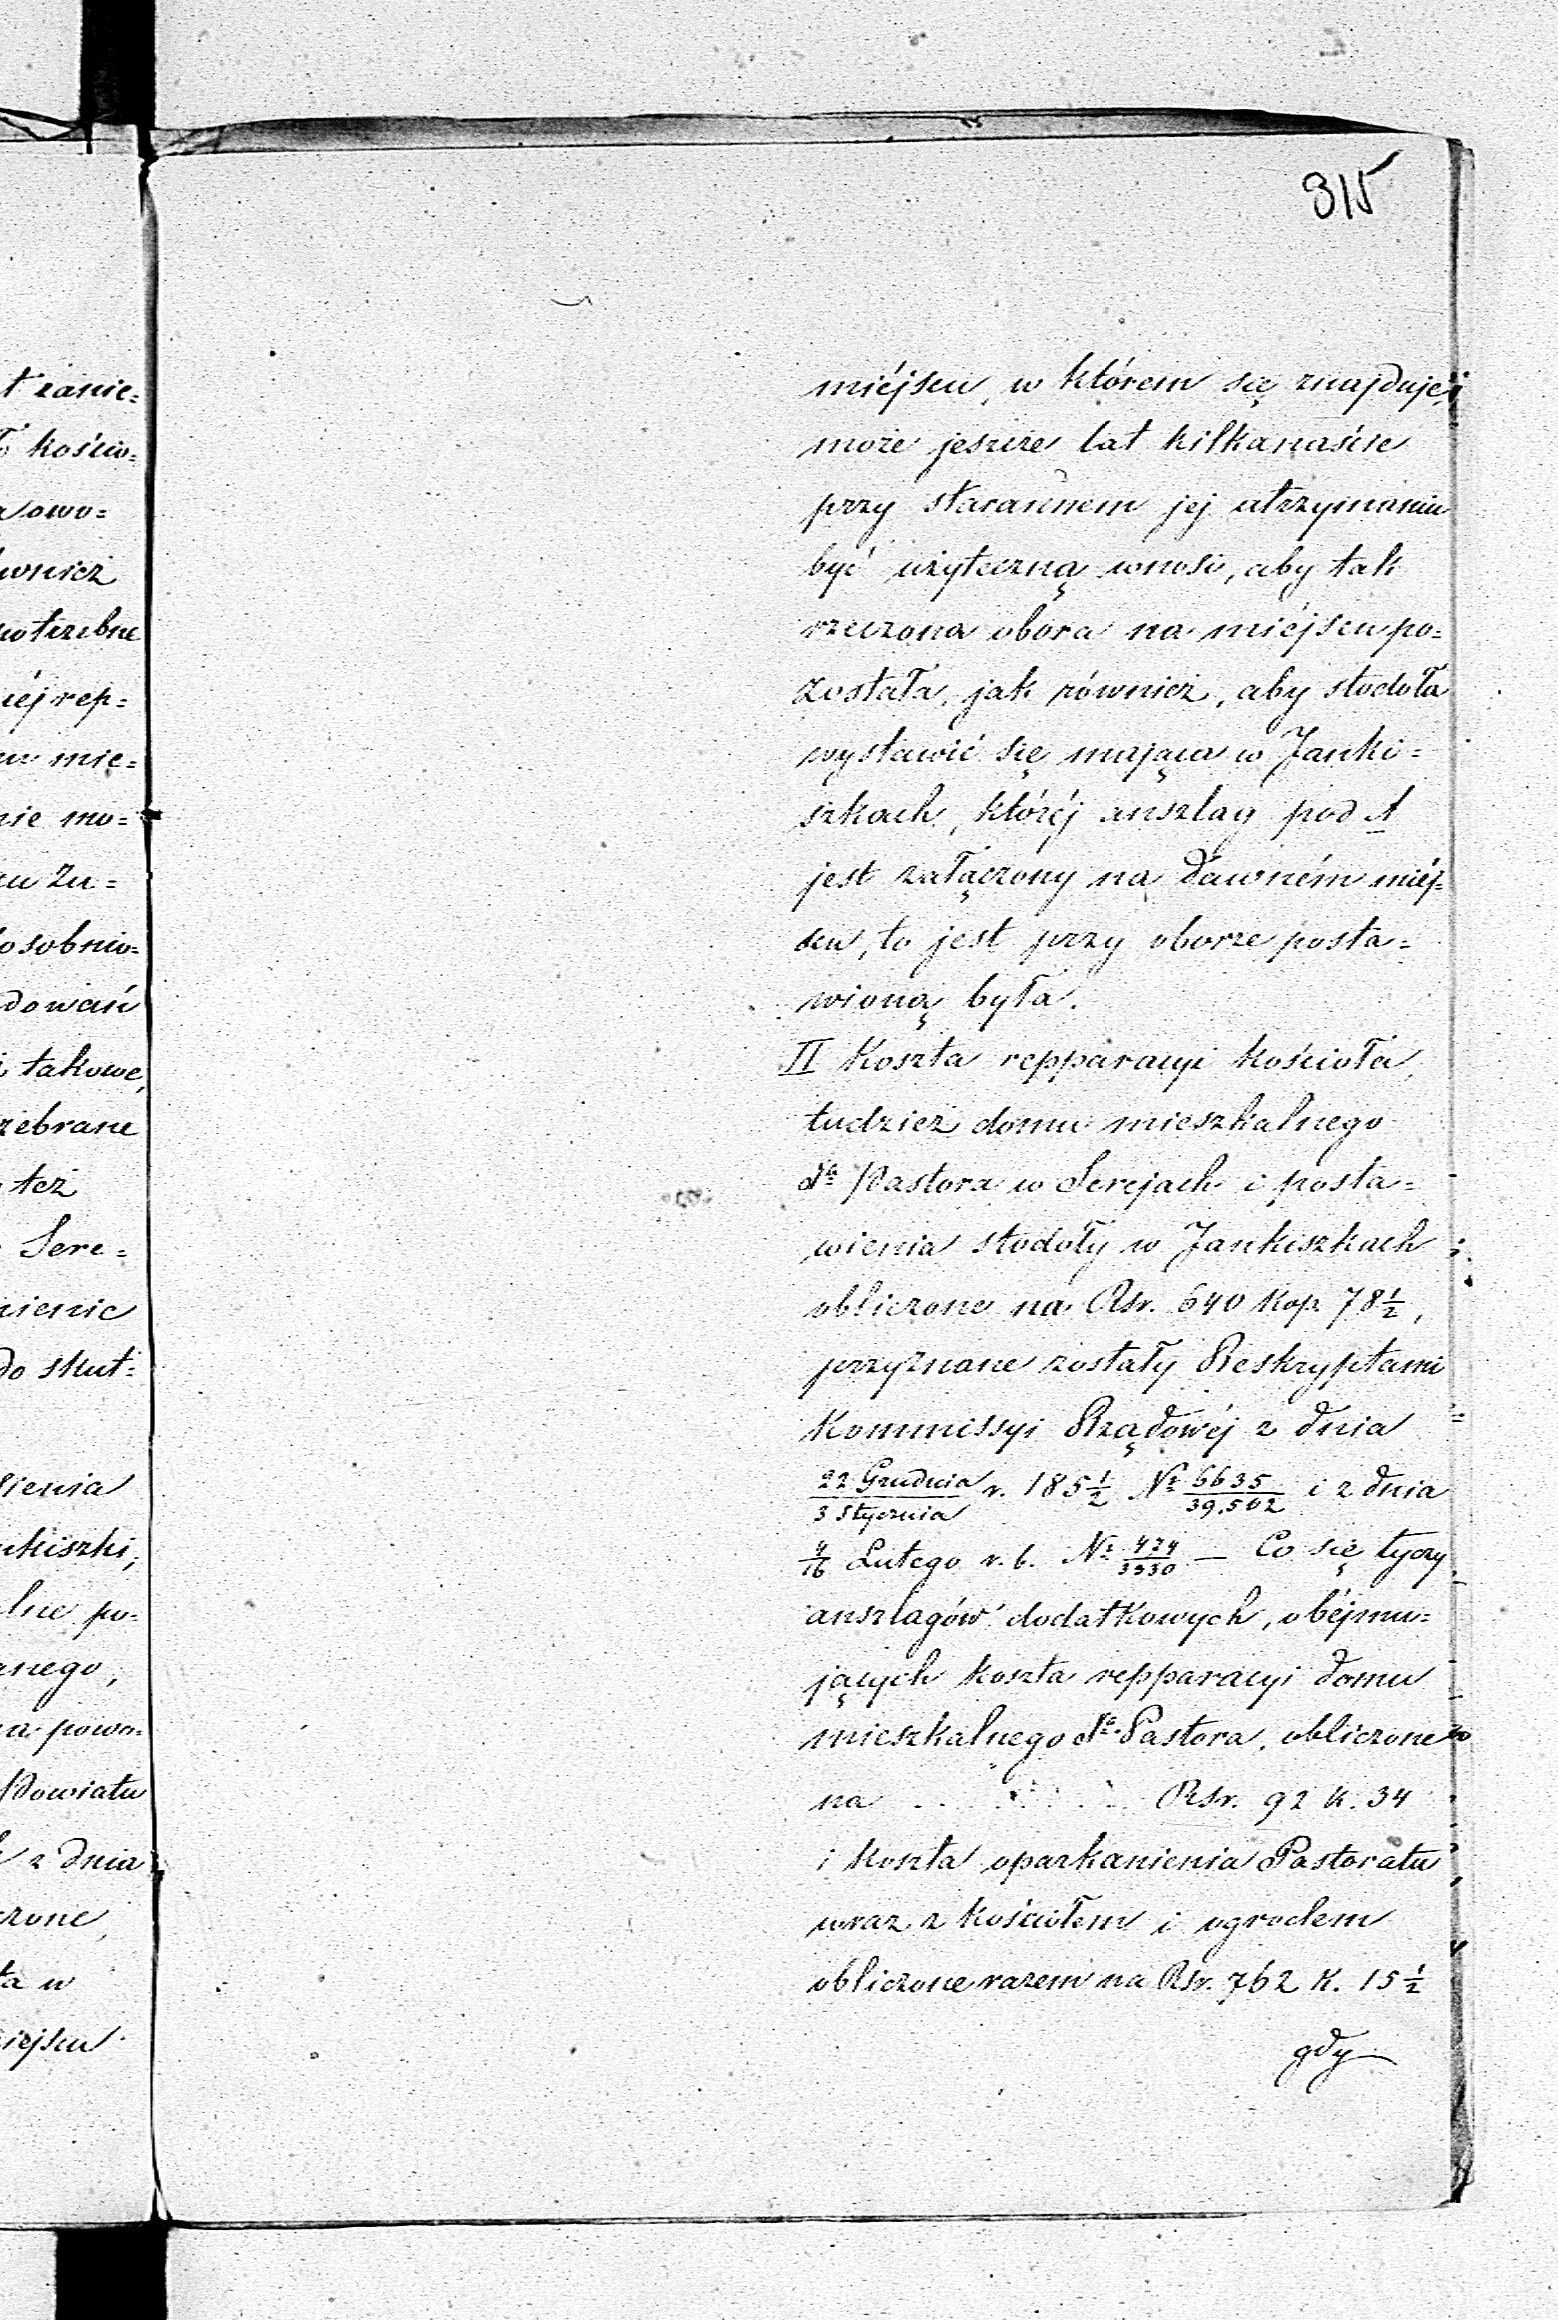 315
t zanie=
kościo=
owo=
wnież
potrzebne
iéj rep=
mie=
nie mo=
osobnio=
dować
takowe,
zebrane
też
Sere=
nienie
do skut=
ienia
kiszki,
lne po=
anego,
powo=
Powiatu
z dnia
czone,
ta w
iejscu
miéjscu, w którem się znajduje, i
może jeszcze lat kilkanaście
przy starannem jéj utrzymaniu
być użyteczną wnosi, aby tak
rzeczona obora na miéjscu po=
została, jak również, aby stodoła
wystawić się mająca w Janki=
szkach, któréj anszlag pod A
jest załączony na dawném miéj=
scu, to jest przy oborze posta=
wioną była.
II Koszta repparacyi kościoła,
tudzież domu mieszkalnego
dla Pastora w Serejach i posta=
wienia stodoły w Jankiszkach
obliczone na Rsr. 640 kop. 78 1/2,
przyznane zostały Reskryptami
Kommissyi Rządowéj z dnia
22 Grudnia/3 Stycznia r. 185 1/2 No 6635/39,502 i z dnia
4/16 Lutego r. b. No 424/3330 — Co się tyczy
anszlagów dodatkowych, obéjmu=
jących koszta repparacyi domu
mieszkalnego dla Pastora, obliczone
na . . . . . . Rsr. 92 k. 34
i koszta oparkanienia Pastoratu
wraz z kościołem i ogrodem
obliczone razem na Rsr. 762 K. 15 1/2
gdy